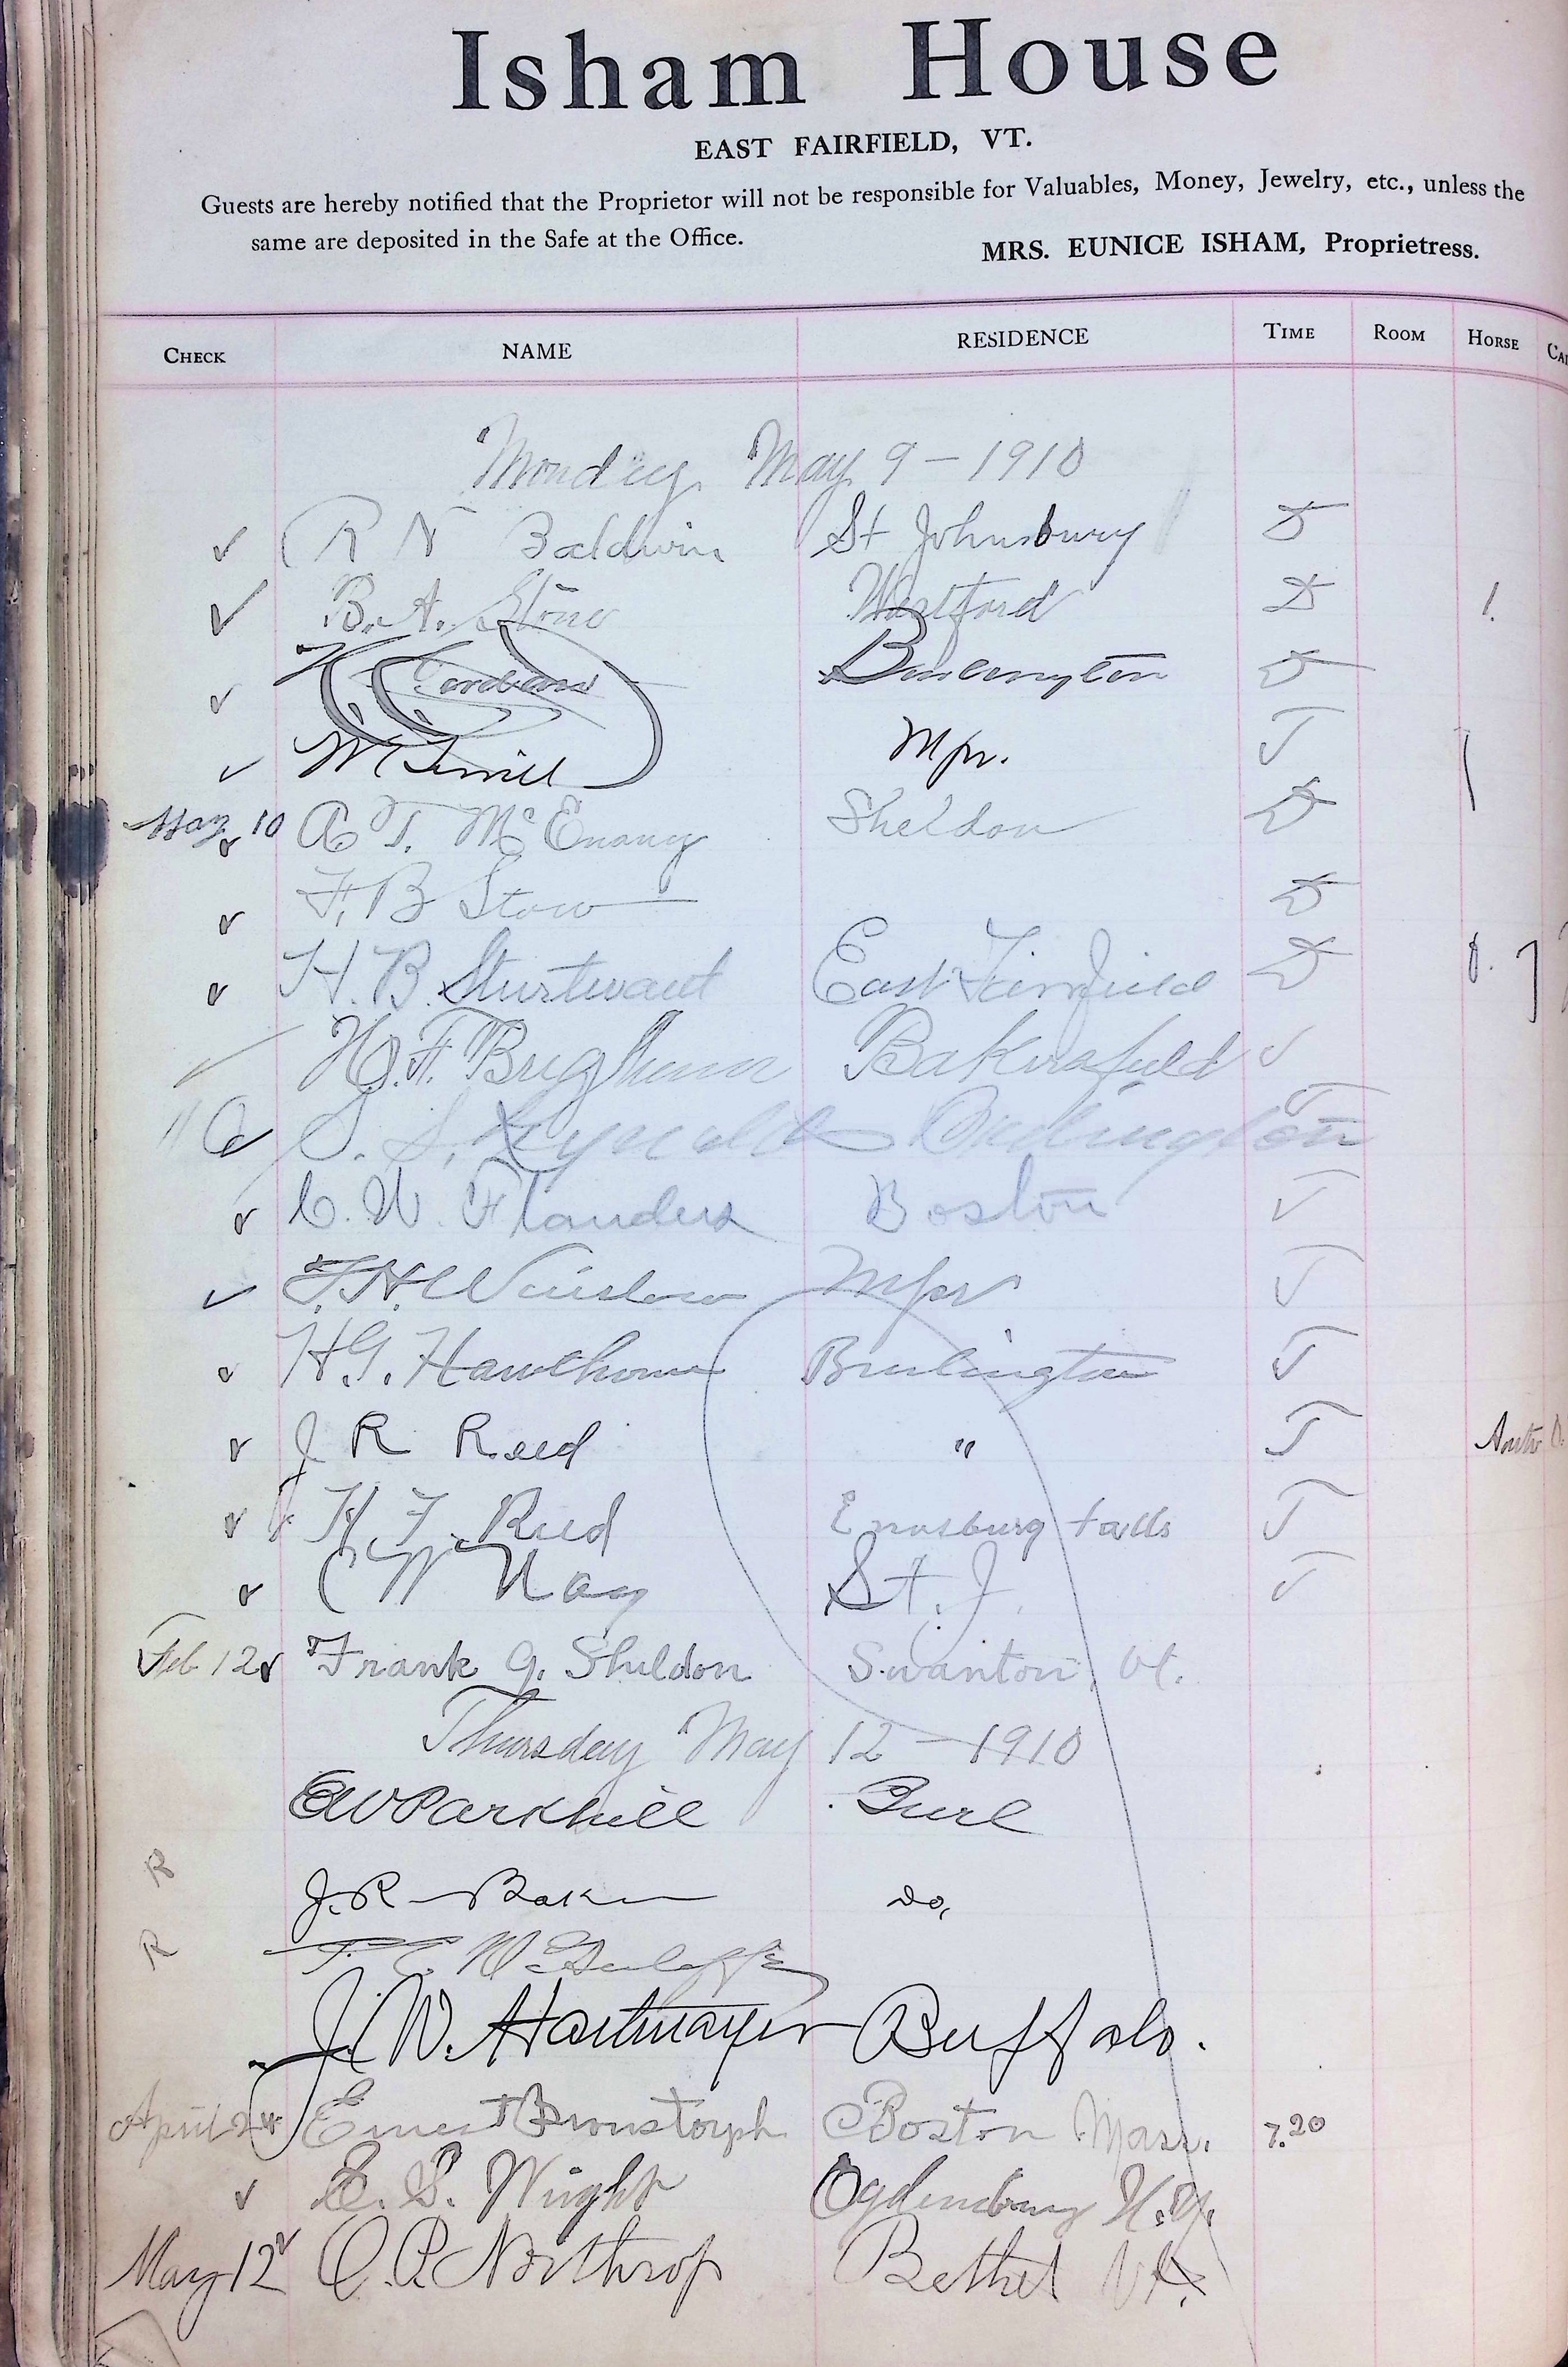 Isham House
EAST FAIRFIELD, VT.
Guests are hereby notified that the Proprietor will not be responsible for Valuables, Money, Jewelry, etc., unless the
same are deposited in the Safe at the Office.
MRS. EUNICE ISHAM, Proprietress.
CHECK NAME RESIDENCE TIME ROOM HORSE
Monday May 9 - 1910
R N Baldwin St Johnsbury D
B. A. Stone Westford D 1.
Jordan Burlington D
Mpr.
May 10 A T. McEnany Sheldon D
F. B Stow D
H. B. Sturtevant East Fairfield D
H. F. Brigham Bakersfield
S. S. Reynolds Burlington
C. W. Flanders Boston
F. H. Winslow Mpr
H. G. Hawthorne Burlington
J R Reed "
H. F. Reed Enosburg Falls
C W St. J.
Feb 12 Frank G. Sheldon Swanton, Vt.
Thursday May 12 - 1910
EW Parkhill Burl
R J. R. Baker Do,
R
J. W. Hartmayer Buffalo.
April 24 Ernest Boston Mass. 7.20
E. S. Wright Ogdensburg N.Y.
May 12 O. P. Northrop Bethel Vt.